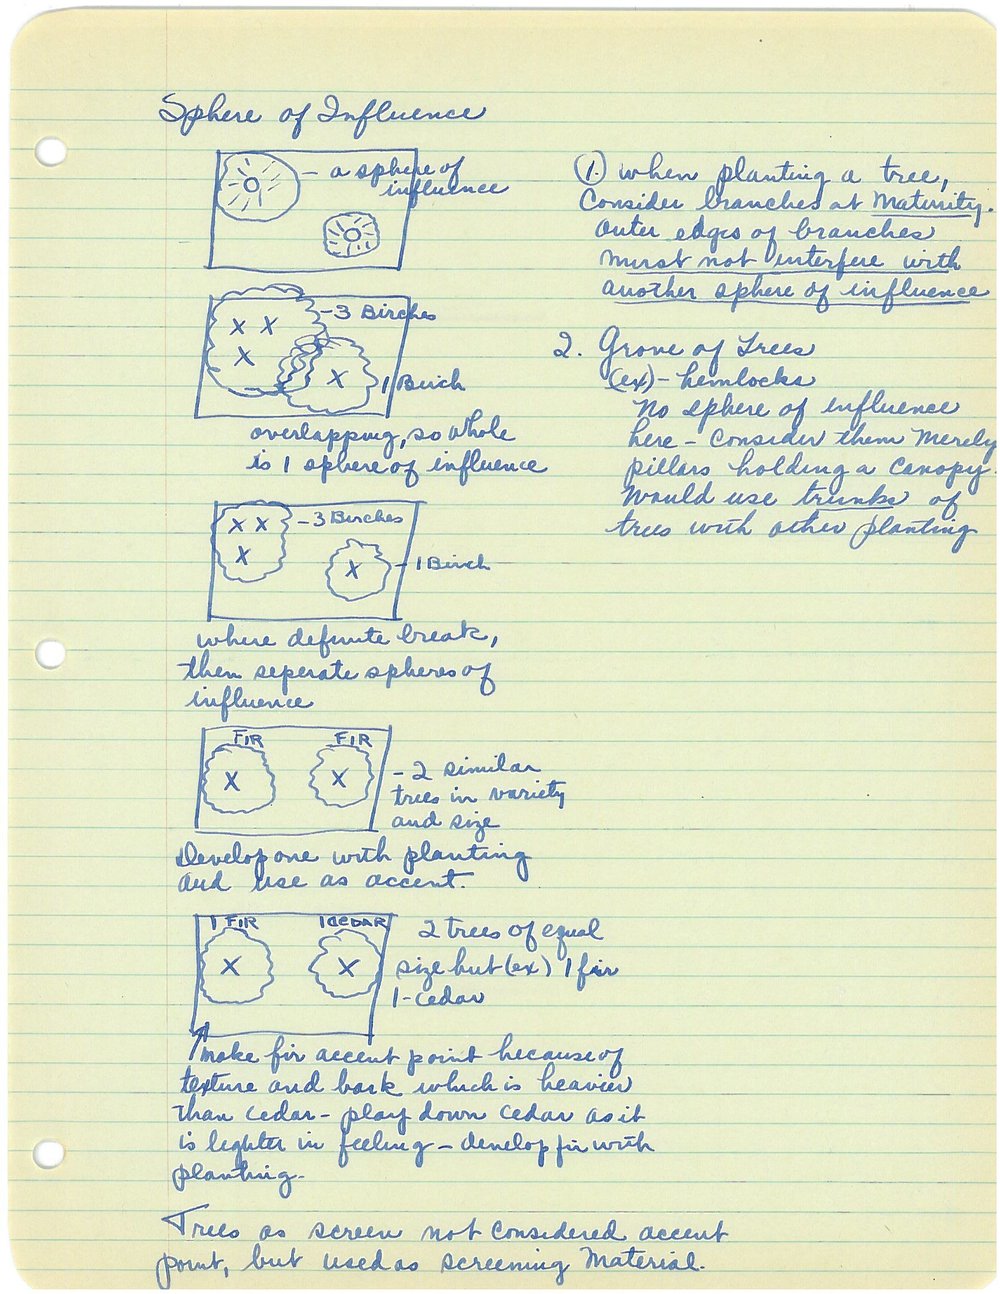 Sphere of Influence
- a sphere of
influence
- 3 Birches
1 Birch
overlapping, so whole
is 1 sphere of influence
- 3 Birches
- 1 Birch
where definite break,
then seperate spheres of
influence
FIR FIR
- 2 similar
trees in variety
and size
Develop one with planting
and use as accent.
1 FIR 1 CEDAR
2 trees of equal
size but (ex) 1 fair
1 - cedar
make fir accent point because of
texture and bark which is heavier
than cedar - play down cedar as it
is lighter in feeling - develop fir with
planting.
Trees as screen not considered accent
point, but used as screening Material.
1. when planting a tree,
Consider branches at Maturity.
Outer edges of branches
must not interfere with
another sphere of influence
2. Grove of Trees
(ex) - hemlocks
No sphere of influence
here - Consider them Merely
pillars holding a Canopy.
Would use trunks of
trees with other planting